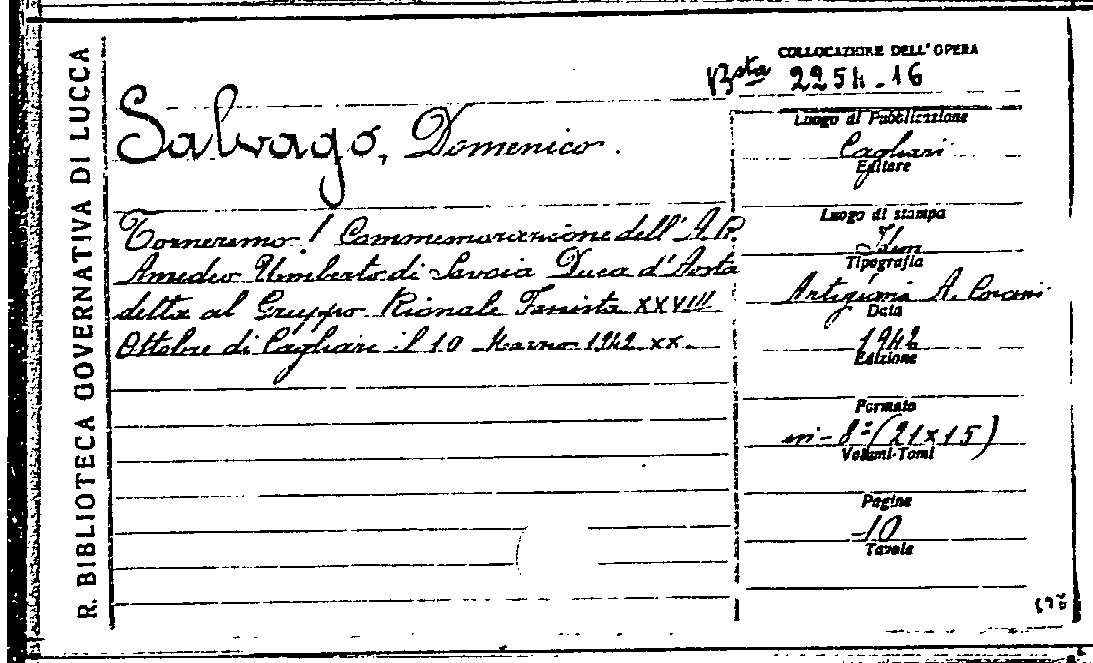 R. BIBLIOTECA GOVERNATIVA DI LUCCA
COLLOCAZIONE DELL' OPERA
Bsta 2254-16
Salvago, Domenico.
Torneremo! Commemorazione dell'A. R.
Amedeo Umberto di Savoia Duca d'Aosta
detta al Gruppo Rionale Fascista XXVIII
Ottobre di Cagliari il 10 Marzo 1942 XX.
Luogo di Pubblicazione
Cagliari
Editore
Luogo di stampa
Idem
Tipografia
Artigiana A.
Data
1942
Edizione
Formato
in-8º (21x15)
Volumi-Tomi
Pagine
10
Tavole